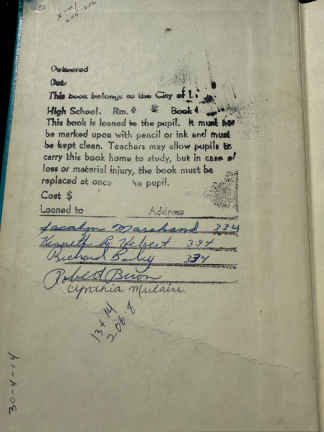 Delivered
This book belongs to the City of L
High School. Rm. Book
This book is loaned to the pupil. It must not
be marked upon with pencil or ink and must
be kept clean. Teachers may allow pupils to
carry this book home to study, but in case of
loss or material injury, the book must be
replaced at once the pupil.
Cost $
Loaned to Address
Jacalyn Marchand 334
Kenneth Hebert 334
Richard 334
Robert Biron
Cynthia
13+14
30-4-14